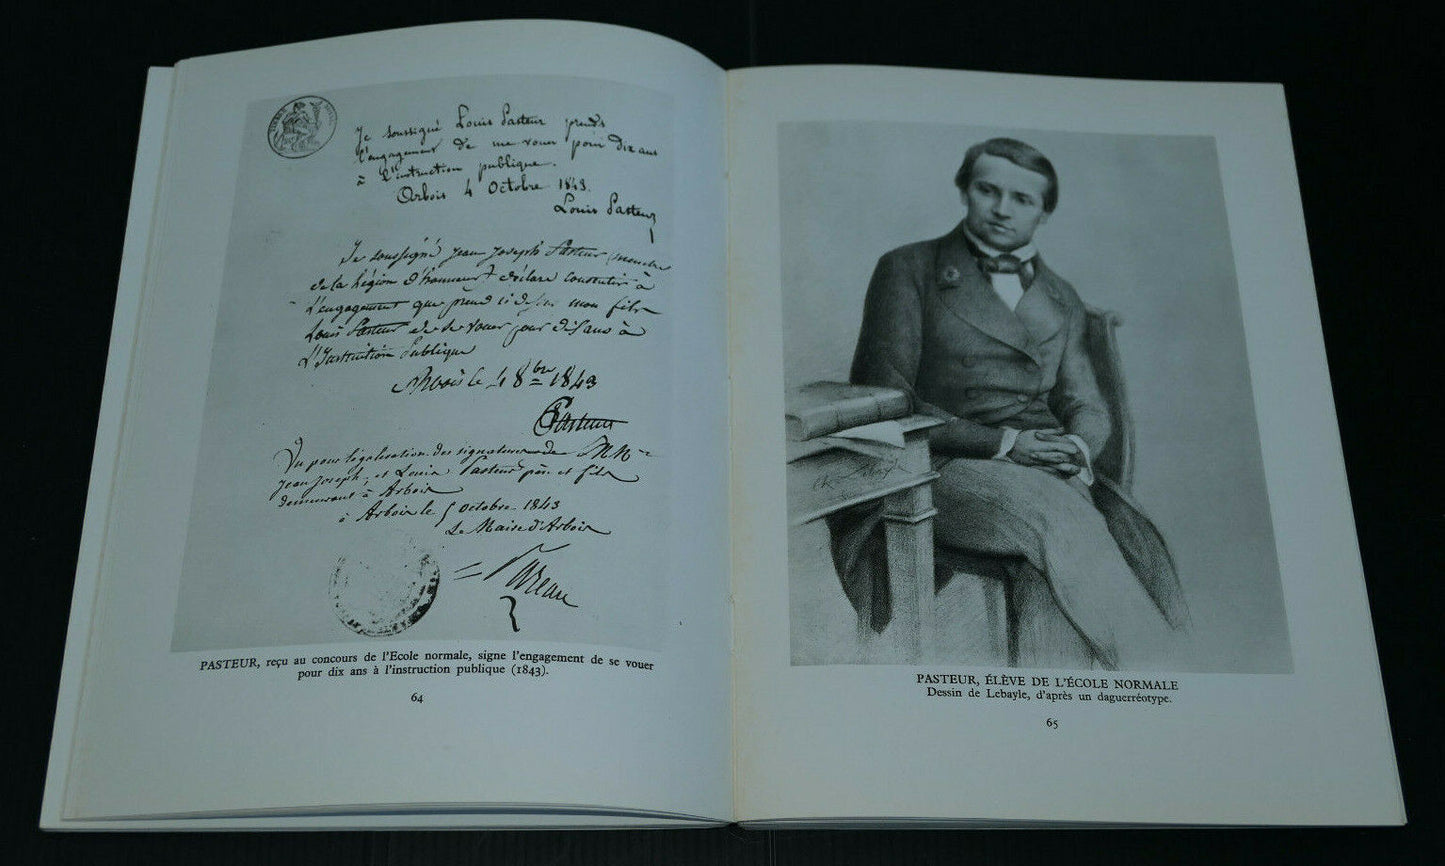 Je soussigné Louis Pasteur prends
l'engagement de me vouer pour dix ans
à l'instruction publique.
Arbois 4 Octobre 1843.
Louis Pasteur
Je soussigné Jean Joseph Pasteur membre
de la légion d'honneur déclare consentir à
l'engagement que prend ci dessus mon fils
Louis Pasteur de se vouer pour dix ans à
L'Instruction Publique
Arbois le 4 8bre 1843
Pasteur
Vu pour légalisation des signatures de MM
Jean Joseph, et Louis Pasteur père et fils
demeurant à Arbois
à Arbois le 5 octobre 1843
Le Maire d'Arbois
Pareau
PASTEUR, reçu au concours de l'Ecole normale, signe l'engagement de se vouer
pour dix ans à l'instruction publique (1843).
64
PASTEUR, ÉLÈVE DE L'ÉCOLE NORMALE
Dessin de Lebayle, d'après un daguerréotype.
65